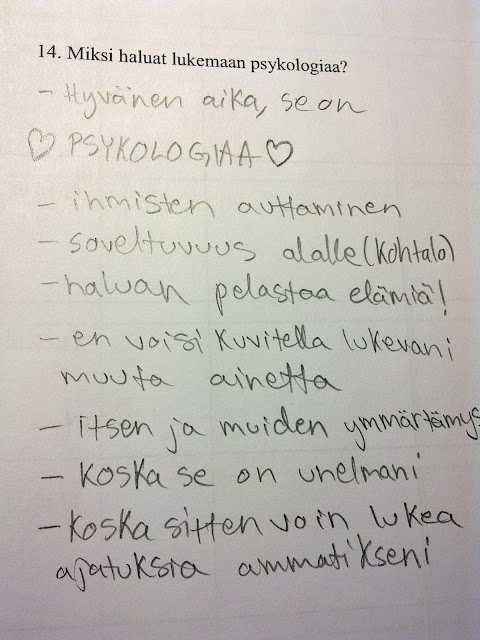 14. Miksi haluat lukemaan psykologiaa?
- Hyvänen aika, se on
♡ PSYKOLOGIAA ♡
- ihmisten auttaminen
- soveltuvuus alalle (kohtalo)
- haluan pelastaa elämiä!
- en voisi kuvitella lukevani
muuta ainetta
- itsen ja muiden ymmärtämys
- koska se on unelmani
- koska sitten voin lukea
ajatuksia ammatikseni